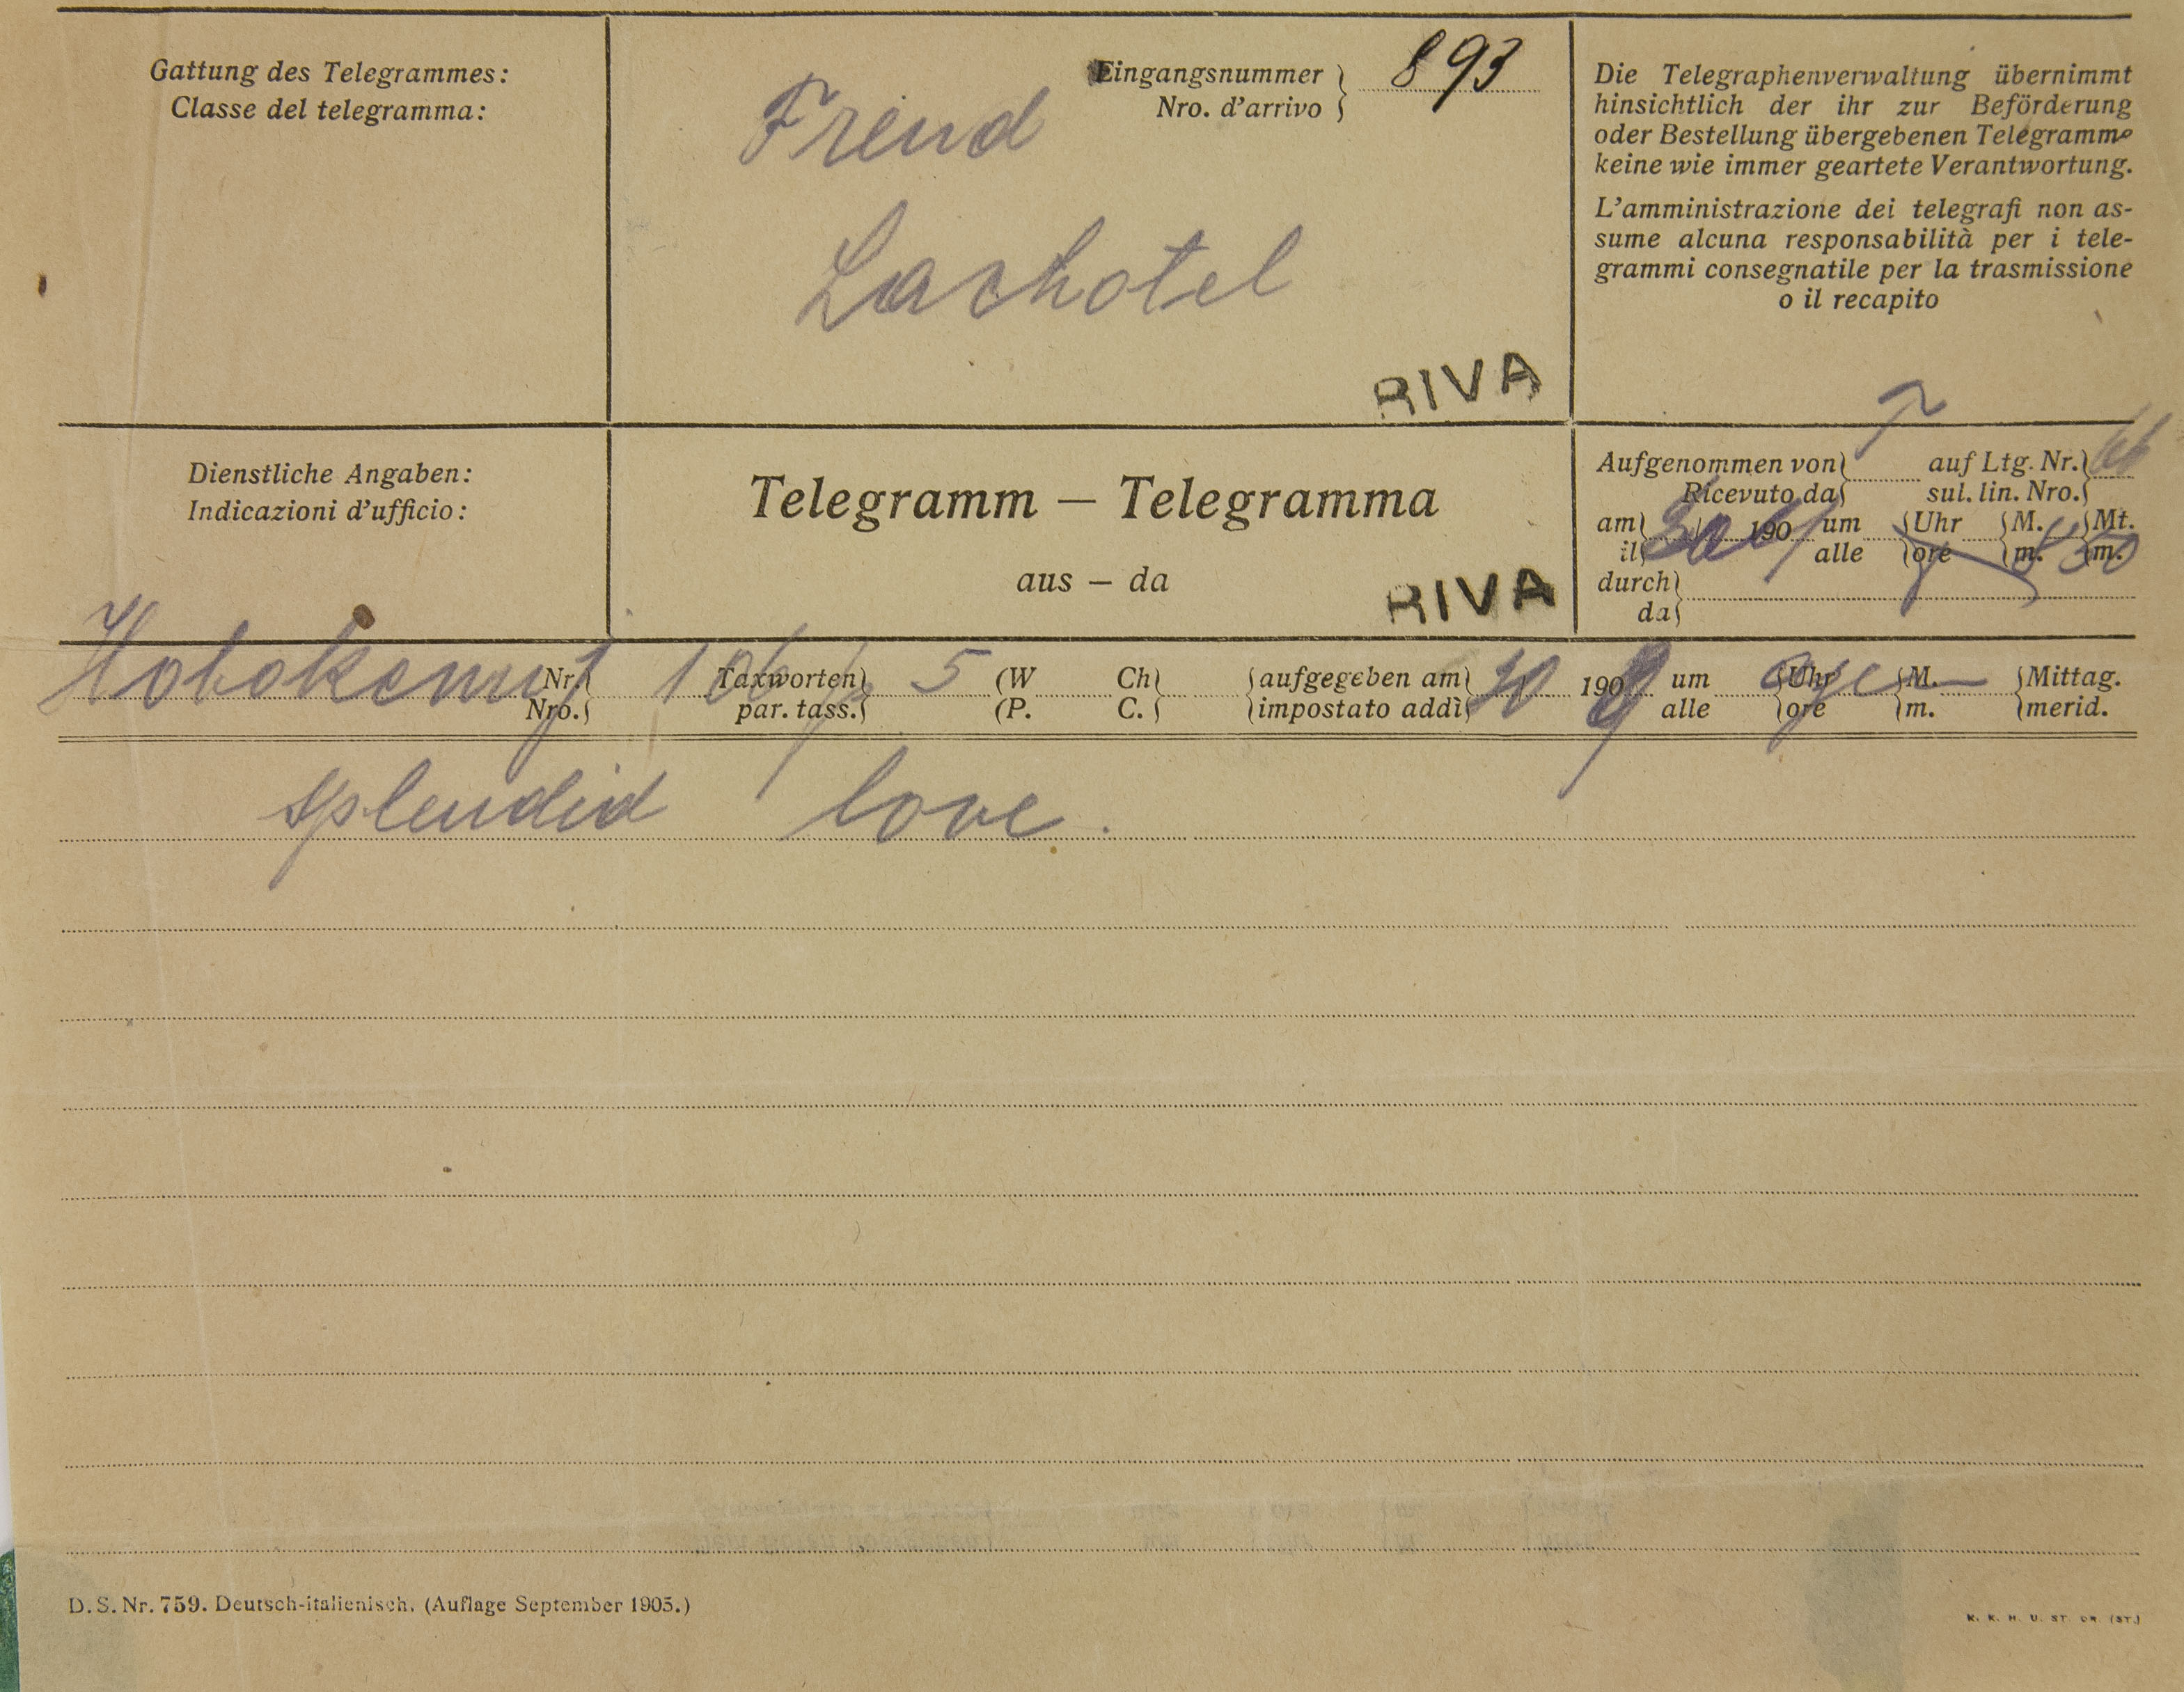 Gattung des Telegrammes:
Classe del telegramma:
Freud
Lachotel
Eingangsnummer
Nro. d'arrivo
893
RIVA
Die Telegraphenverwaltung übernimmt
hinsichtlich der ihr zur Beförderung
oder Bestellung übergebenen Telegramme
keine wie immer geartete Verantwortung.
L'amministrazione dei telegrafi non as-
sume alcuna responsabilità per i tele-
grammi consegnatile per la trasmissione
o il recapito
Dienstliche Angaben:
Indicazioni d'ufficio:
Telegramm — Telegramma
aus — da
RIVA
Aufgenommen von auf Ltg. Nr.
Ricevuto da sul. lin. Nro.
am 190 um Uhr M. Mt.
il alle ore m. m.
durch
da
Hobokennyf Nr. 106 Taxworten 5 (W Ch aufgegeben am 30 190 um Uhr M. Mittag.
Nro. par. tass. (P. C. impostato addì alle ore m. merid.
splendid love.
D. S. Nr. 759. Deutsch-italienisch. (Auflage September 1905.)
K. K. H. U. ST. DR. (ST.)